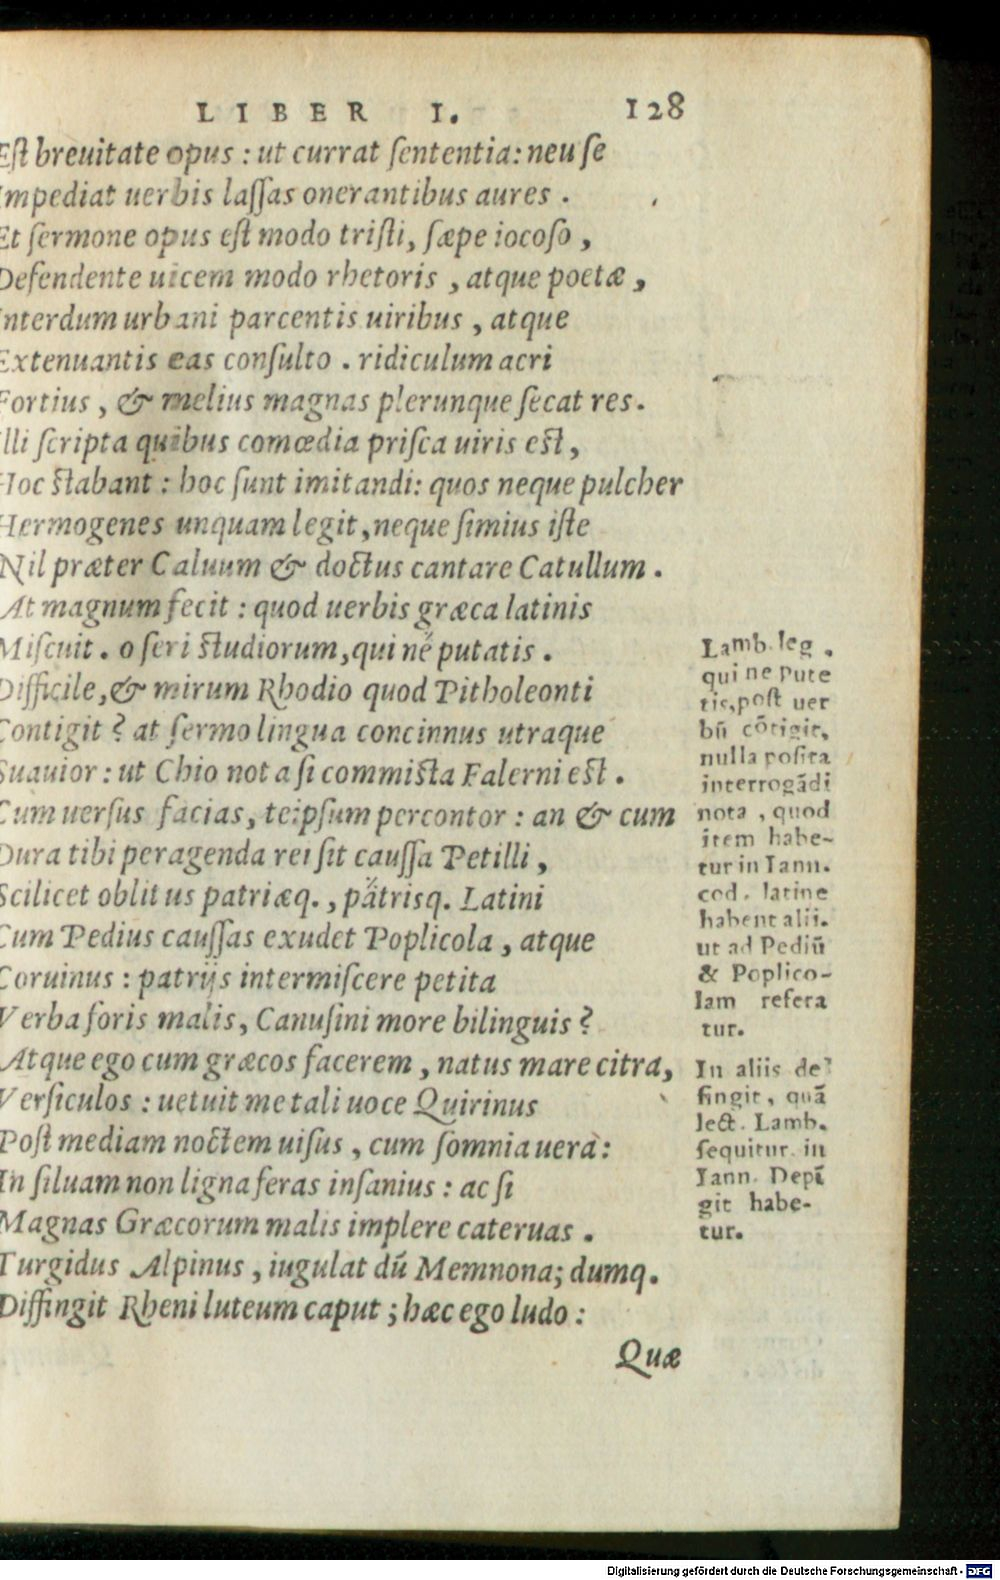 LIBER I. 128
Est breuitate opus : ut currat sententia: neu se
Impediat uerbis lassas onerantibus aures .
Et sermone opus est modo tristi, sæpe iocoso ,
Defendente uicem modo rhetoris , atque poetæ ,
Interdum urbani parcentis uiribus , atque
Extenuantis eas consulto . ridiculum acri
Fortius , & melius magnas plerunque secat res.
Illi scripta quibus comœdia prisca uiris est,
Hoc stabant : hoc sunt imitandi: quos neque pulcher
Hermogenes unquam legit, neque simius iste
Nil præter Caluum & doctus cantare Catullum .
At magnum fecit : quod uerbis græca latinis
Miscuit . o seri studiorum, qui ne putatis .
Difficile, & mirum Rhodio quod Pitholeonti
Contigit ? at sermo lingua concinnus utraque
Suauior : ut Chio nota si commista Falerni est .
Cum uersus facias, teipsum percontor : an & cum
Dura tibi peragenda rei sit caussa Petilli ,
Scilicet oblitus patriæq. , patrisq. Latini
Cum Pedius caussas exudet Poplicola , atque
Coruinus : patrijs intermiscere petita
Verba foris malis, Canusini more bilinguis ?
Atque ego cum græcos facerem , natus mare citra,
Versiculos : uetuit me tali uoce Quirinus
Post mediam noctem uisus , cum somnia uera:
In siluam non ligna feras insanius : ac si
Magnas Græcorum malis implere cateruas .
Turgidus Alpinus , iugulat dū Memnona; dumq.
Diffingit Rheni luteum caput ; hæc ego ludo :
Quæ
Lamb. leg .
qui ne pute
tis, post uer
bū cōtigit,
nulla posita
interrogādi
nota , quod
item habe-
tur in Iann.
cod. latine
habent alii.
ut ad Pediū
& Poplico-
lam refera
tur.
In aliis de
fingit, quā
lect. Lamb.
sequitur. in
Iann. Depī
git habe-
tur.
Digitalisierung gefördert durch die Deutsche Forschungsgemeinschaft - DFG